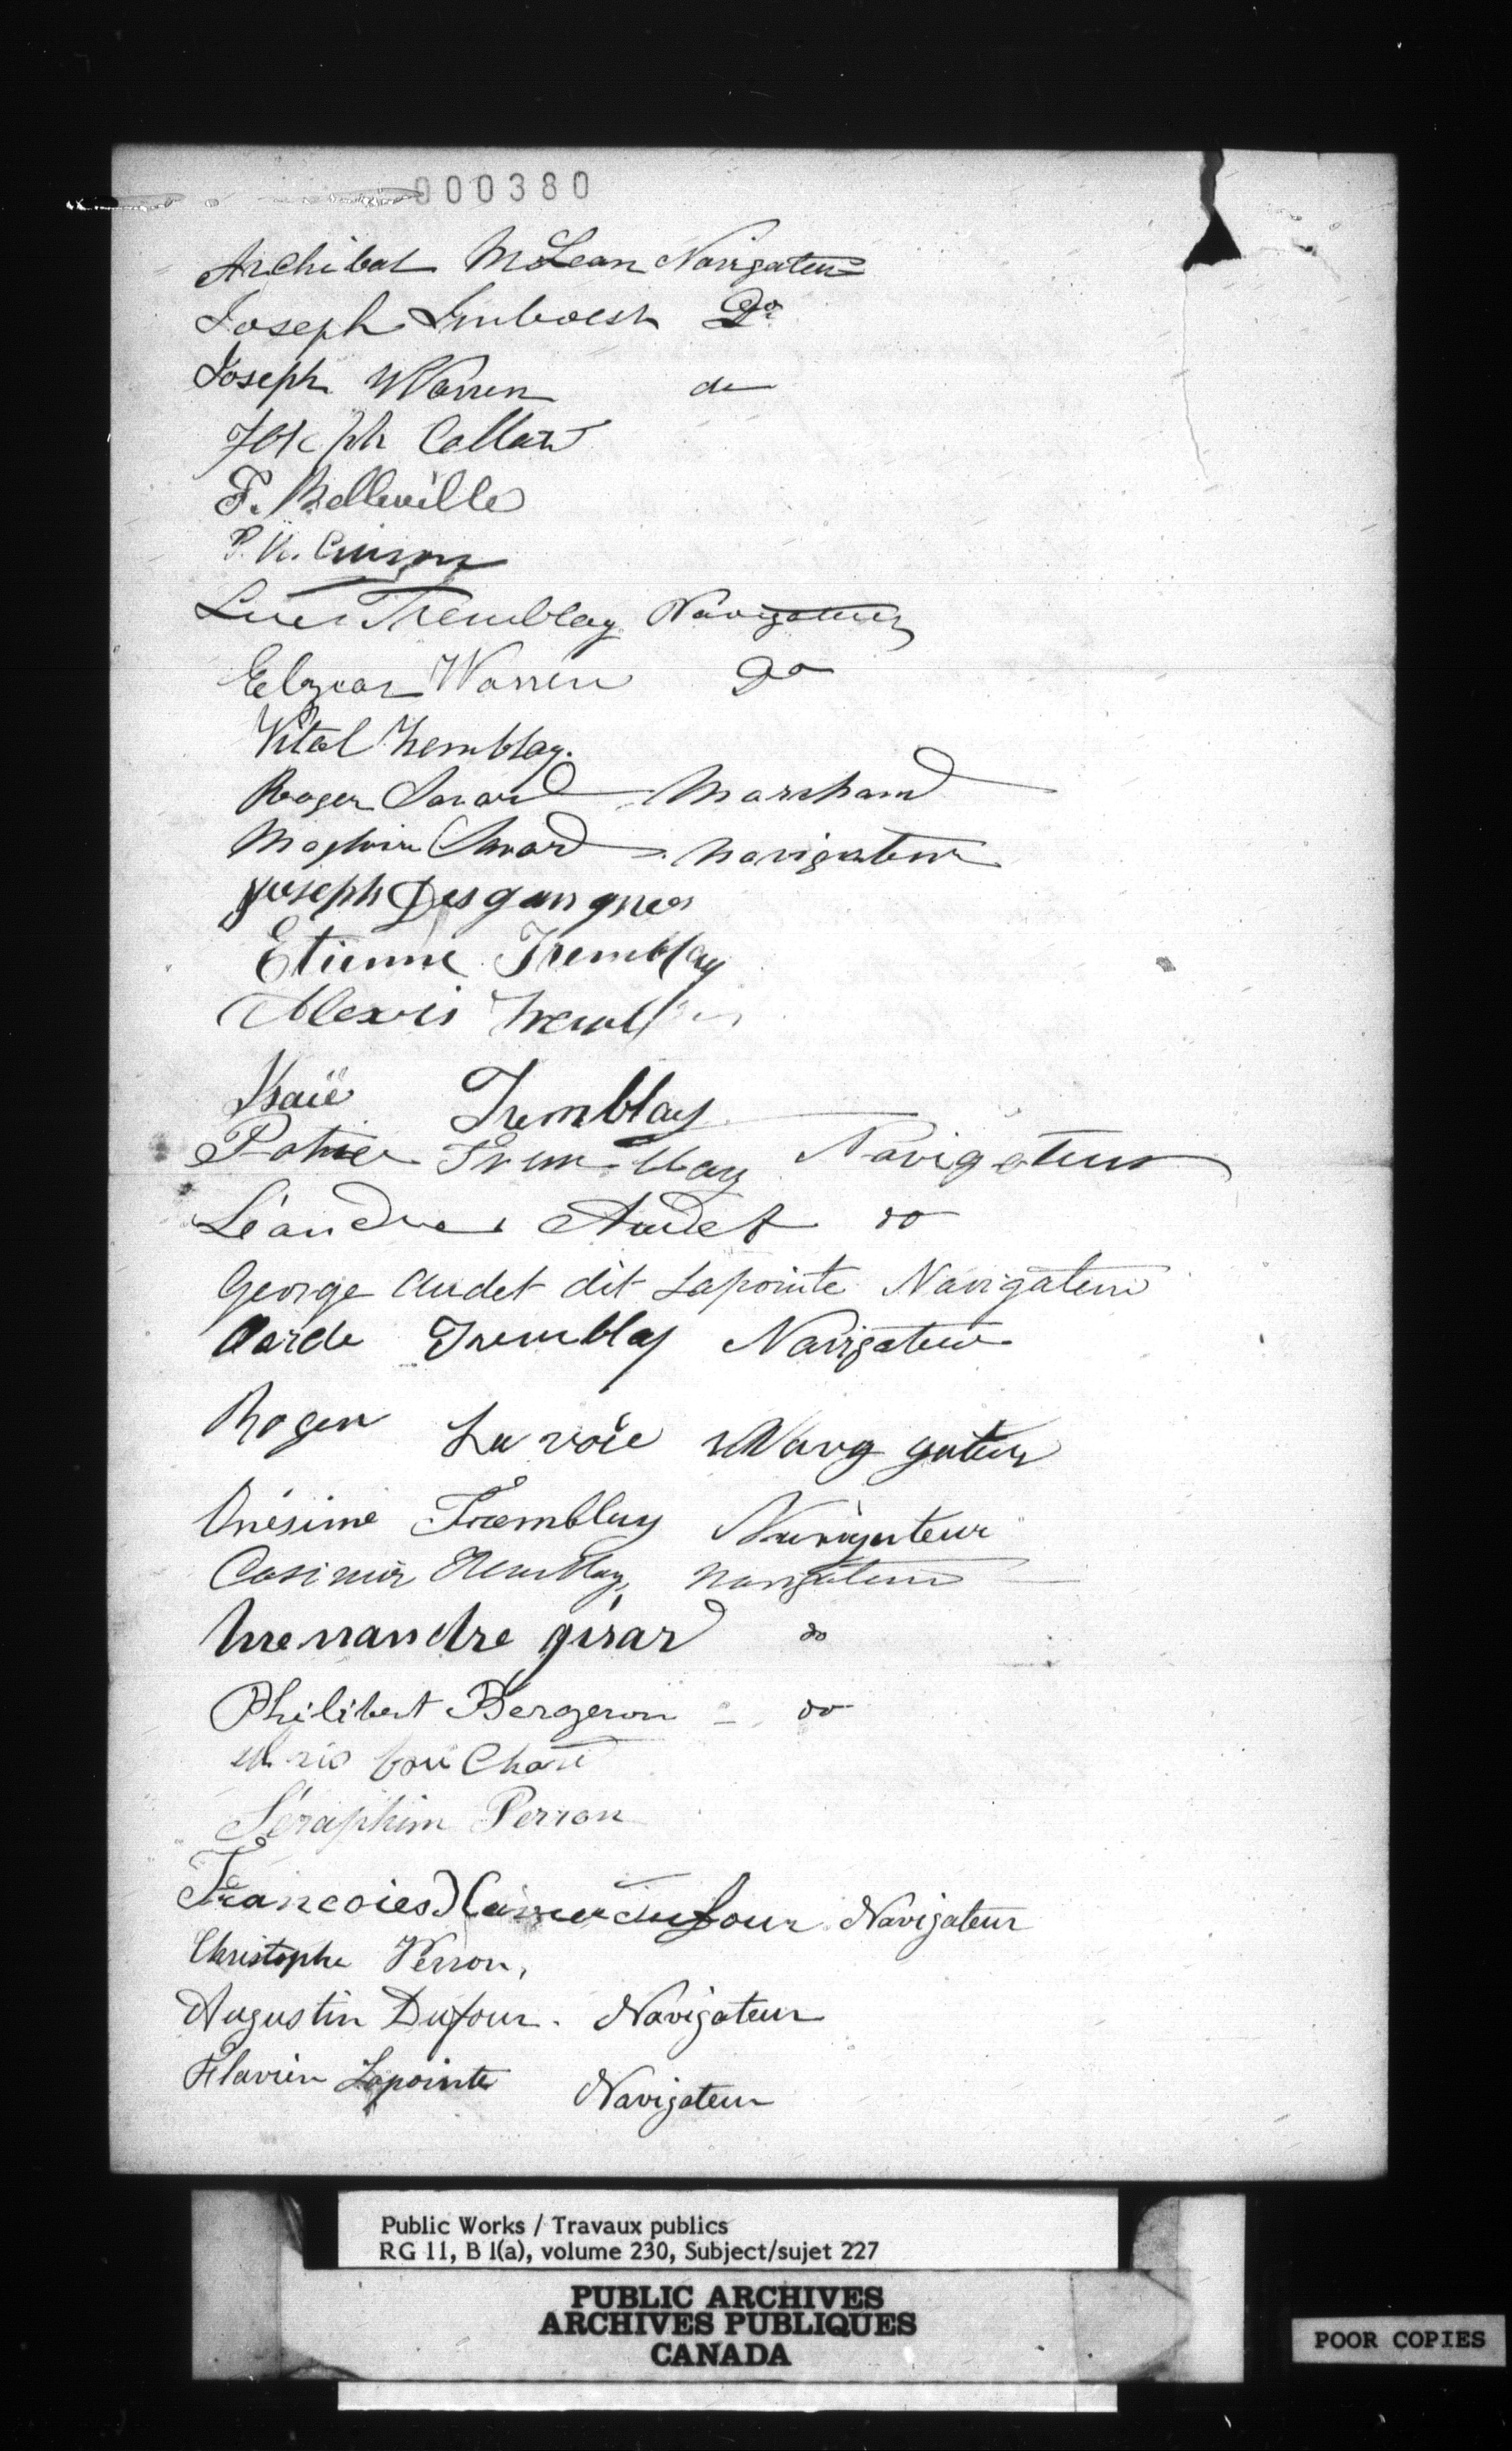 000380
Archibal McLean Navigateur
Joseph Do
Joseph Warren do
Joseph
F. Belleville
P.
Tremblay Navigateur
Elzear Warren Do
Vital Tremblay.
Roger Savard Marchand
Savard navigateur
Joseph Desgangnes
Etienne Tremblay
Alexis
Isaïe Tremblay
Tremblay Navigateur
Léandre Audet do
George Audet dit Lapointe Navigateur
Tremblay Navigateur
Roger Lavoie
Onésime Tremblay Navigateur
Casimir Tremblay navigateur
Menandre girar do
Philibert Bergeron do
bouchard
Séraphim Perron
Francoies Xavier dufour Navigateur
Christophe Perron,
Augustin Dufour. Navigateur
Flavien Lapointe Navigateur
Public Works / Travaux publics
RG 11, B 1(a), volume 230, Subject/sujet 227
PUBLIC ARCHIVES
ARCHIVES PUBLIQUES
CANADA
POOR COPIES